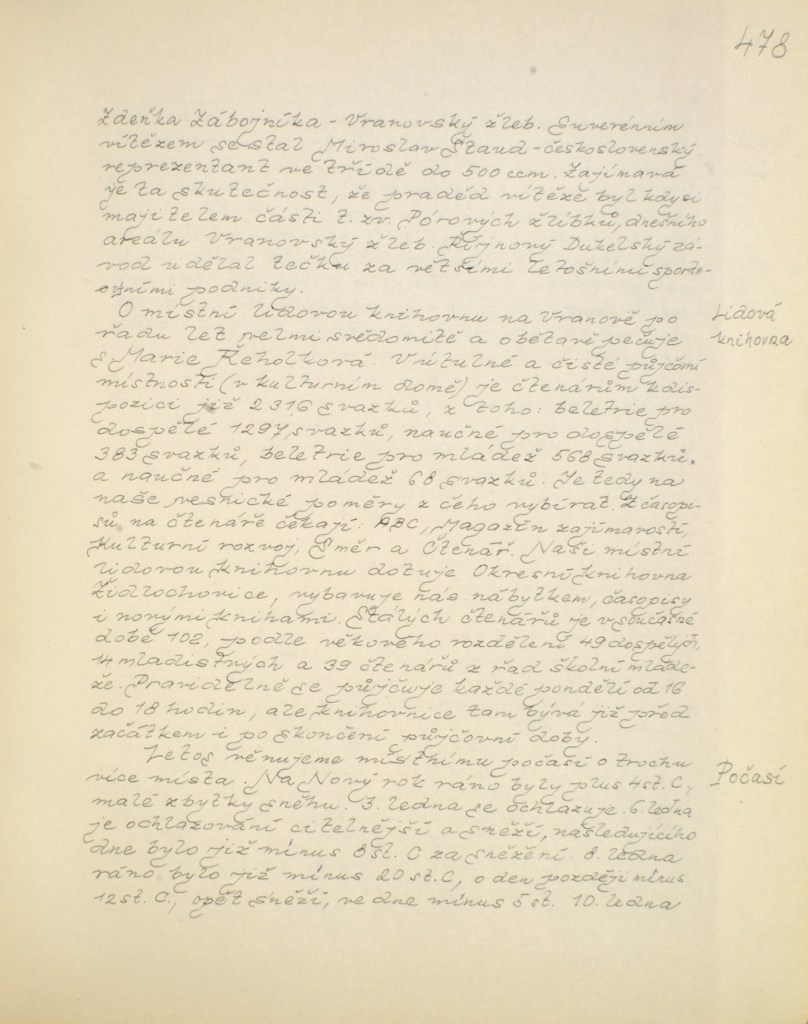 478
Zdeňka Zábojníka - Vranovský žleb. Suverénním
vítězem se stal Miroslav Staud - československý
reprezentant ve třídě do 500 ccm. Zajímavá
je ta skutečnost, že praděd vítěze byl kdysi
majitelem části t. zv. Pórových žlíbků, dnešního
areálu Vranovský žleb. Říjnový Dukelský zá-
vod udělal tečku za většími letošními sporto-
vními podniky.
O místní lidovou knihovnu na Vranově po
řadu let velmi svědomitě a obětavě pečuje
s. Marie Řeholková. V útulné a čisté půjčovní
místnosti (v kulturním domě) je čtenářům k dis-
pozici již 2316 svazků, z toho: beletrie pro
dospělé 1297 svazků, naučné pro dospělé
383 svazků, beletrie pro mládež 568 svazků.
a naučné pro mládež 68 svazků. Je tedy na
naše vesnické poměry z čeho vybírat. Z časopi-
sů na čtenáře čekají: ABC, Magazín zajímavostí,
Kulturní rozvoj, Směr a Čtenář. Naši místní
lidovou knihovnu dotuje Okresní knihovna
Židlochovice, vybavuje nás nábytkem, časopisy
i novými knihami. Stálých čtenářů je v současné
době 102, podle věkového rozdělení 49 dospělých,
14 mladistvých a 39 čtenářů z řad školní mláde-
že. Pravidelně se půjčuje každé pondělí od 16
do 18 hodin, ale knihovnice tam bývá již před
začátkem i po skončení půjčovní doby.
Letos věnujeme místnímu počasí o trochu
více místa. Na Nový rok ráno byly plus 4 st. C,
malé zbytky sněhu. 3. ledna se ochlazuje. 6. ledna
je ochlazování citelnější a sněží, následujícího
dne bylo již mínus 8 st. C za sněžení. 8. ledna
ráno bylo již mínus 20 st. C, o den později mínus
12 st. C, opět sněží, ve dne mínus 5 st. 10. ledna
Lidová
knihovna
Počasí